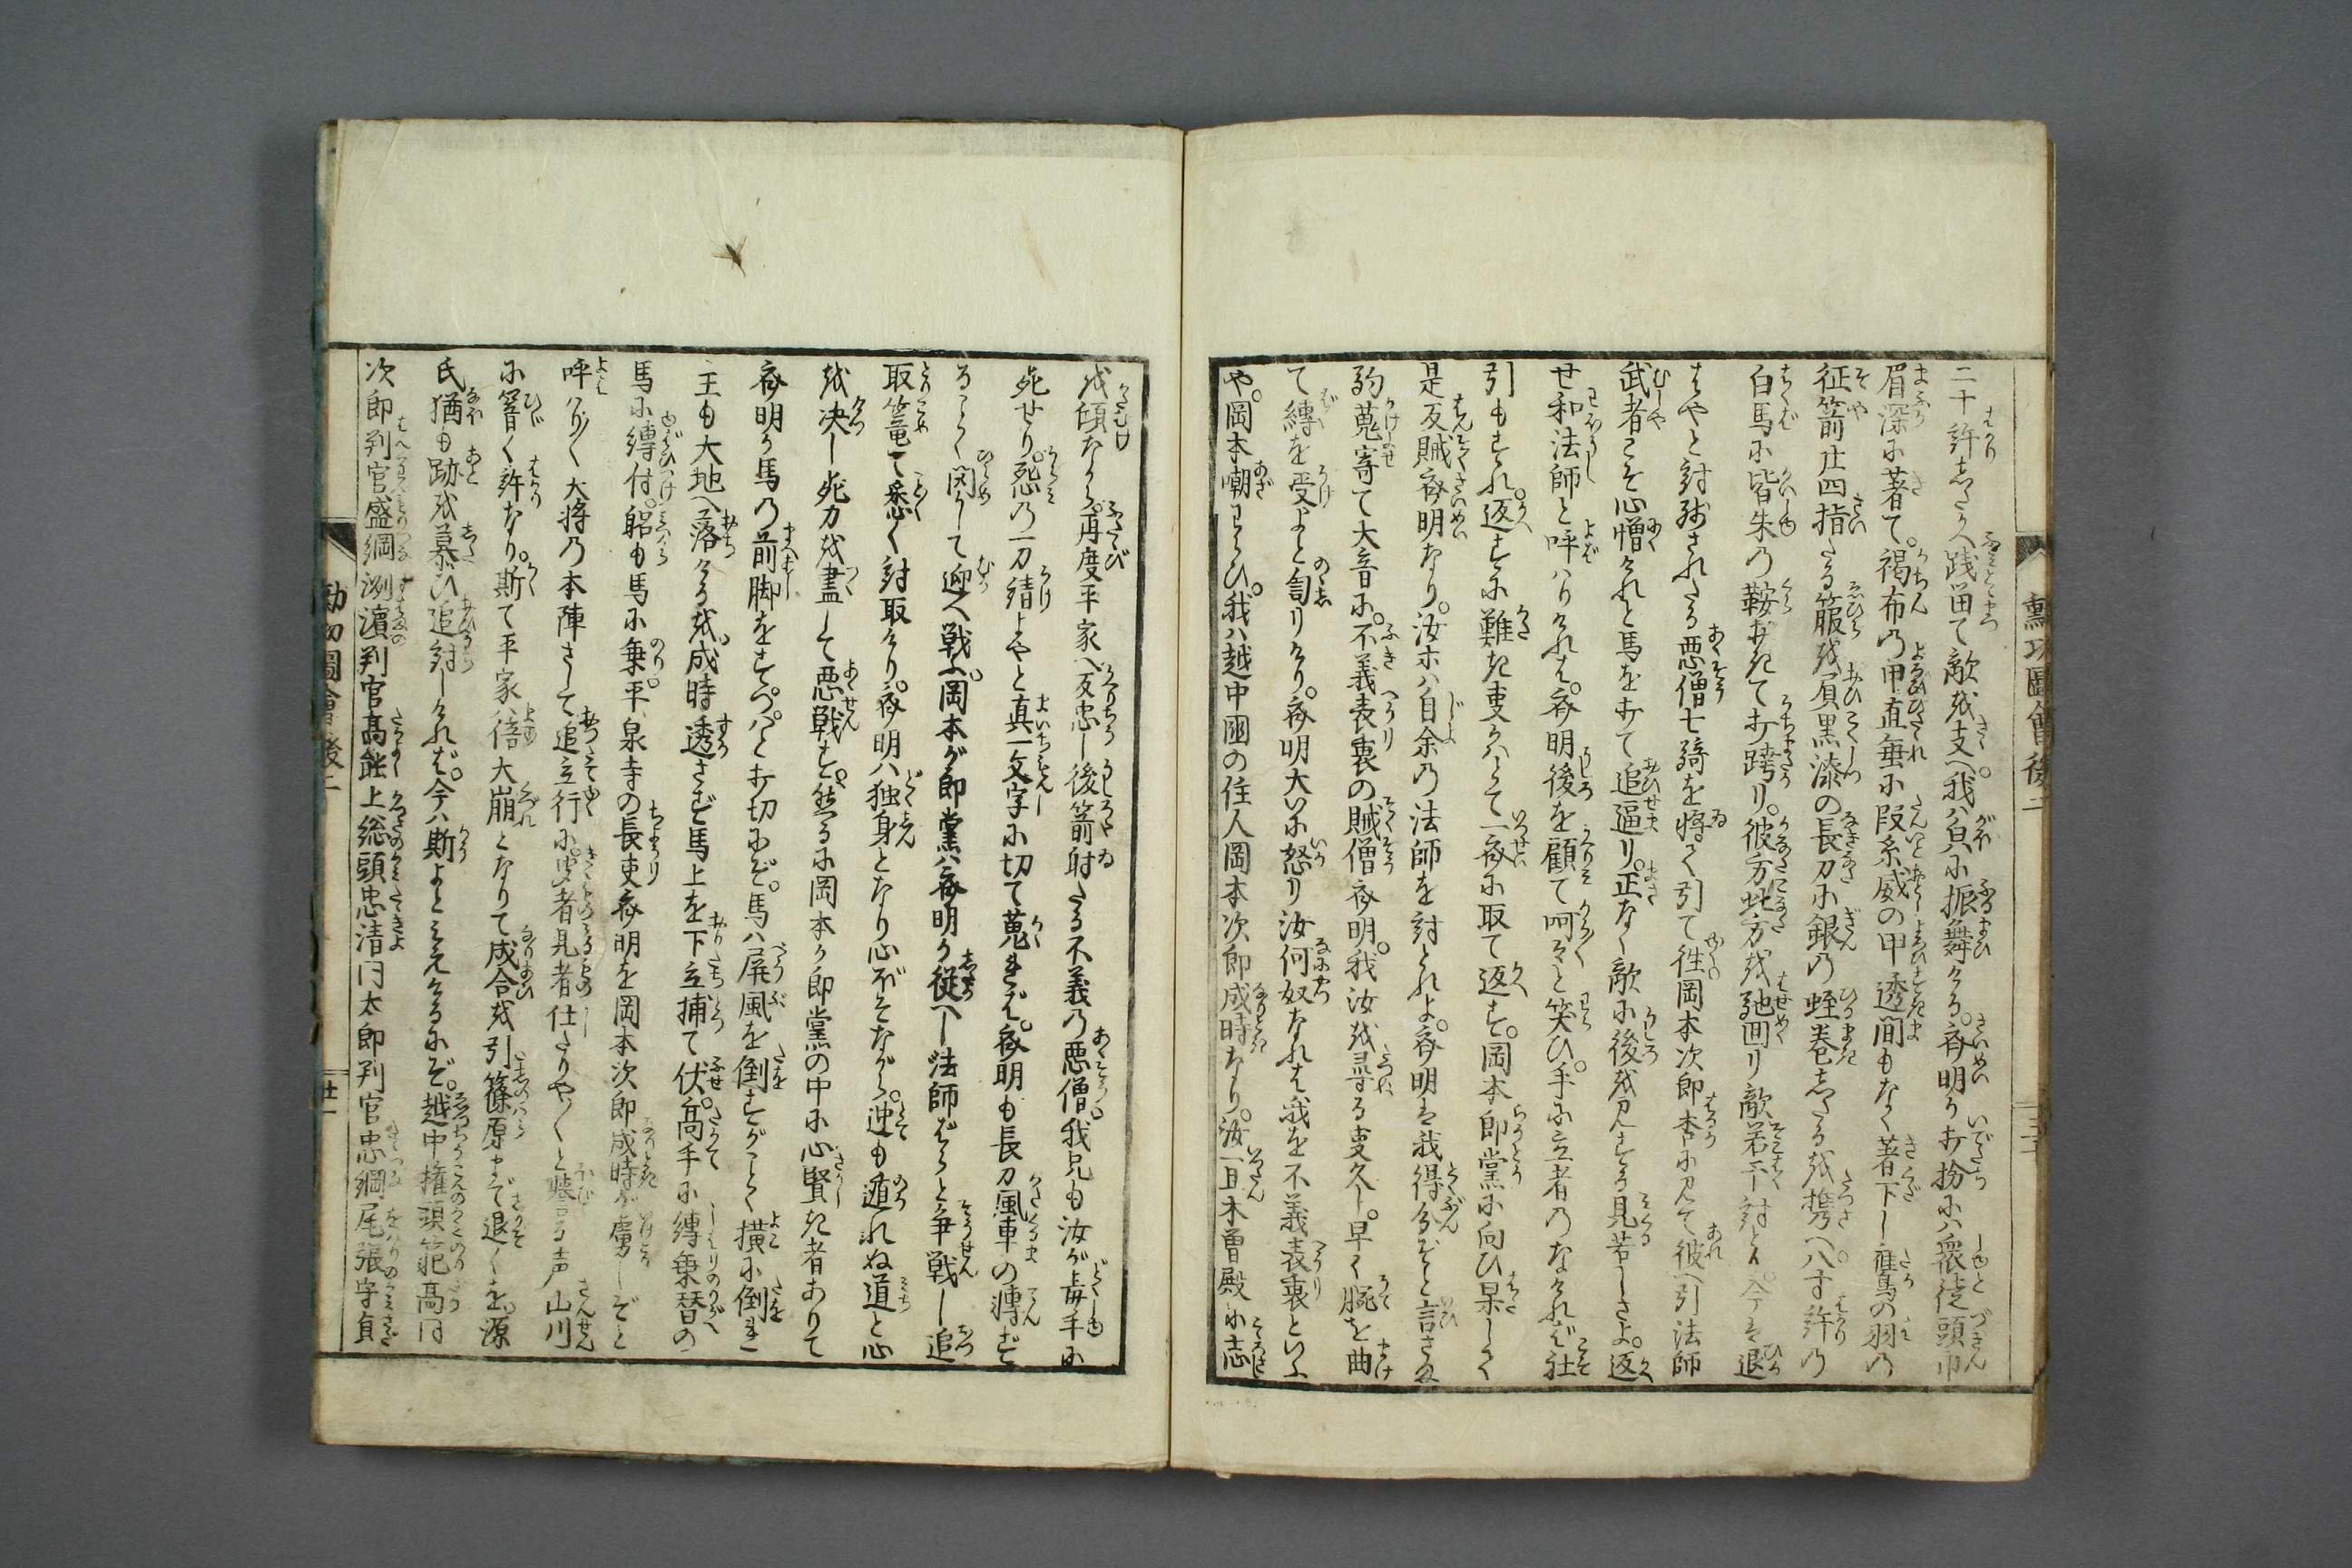 二十許志たゝへ践留て敵を支へ。我ハ只に振舞ける。斎明が打扮にハ衆徒頭巾
眉深に著て。褐布の甲直垂に段糸威の甲透間もなく著下し。鷹の羽の
征箭廿四指たる箙を負。黒漆の長刀に銀の蛭巻志たるを携へ。八寸許の
白馬に皆朱の鞍おきて打跨り。彼方此方を馳回り敵若干討とり。今は退
はやと討残されたる悪僧七騎を将て引て往。岡本次郎杳に見て彼へ引法師
武者こそ心憎けれと馬を打て追逼り。正なく敵に後を見する見苦しさよ。返
せ和法師と呼ハりければ。斎明後を顧て呵々と笑ひ。手に立者のなければ社
引もすれ。返すに難き事かハとて一勢に取て返す。岡本郎党に向ひ果しく
是反賊斎明なり。汝等ハ自余の法師を討とれよ。斎明は我得分ぞと言さま
駒蒐寄て大音に。不義表裏の賊僧斎明。我汝を尋る事久し。早く腕を曲
て縛を受よと訇りけり。斎明大いに怒り汝何奴なれば我を不義表裏といふ
や。岡本嘲わらひ。我ハ越中国の住人岡本次郎成時なり。汝一旦木曽殿に志
を傾ながら。再度平家へ反忠し後箭射たる不義の悪僧。我兄も汝が毒手に
死せり。怨の一刀請よやと真一文字に切て蒐れば。斎明も長刀風車の轉ず
ることく閃かして迎へ戦ふ。岡本が郎党ハ斎明が従へし法師ばらと争戦し追
取篭て悉く討取けり。斎明ハ独身となり心ぼそながら。迚も遁れぬ道と心
を決し死力を盡して悪戦す。然るに岡本が郎党の中に心賢き者ありて
斎明が馬の前脚をすつぱと打切にぞ。馬ハ屏風を倒すがことく横に倒れ
主も大地へ落けるを。成時透さず馬上を下立捕て伏。高手に縛乗替の
馬に縛付。躬も馬に乗。平泉寺の長吏斎明を岡本次郎成時が虜しぞと
呼ハり〳〵大将の本陣さして追立行に。聞者見者仕たりや〳〵と誉る声山川
に響く許なり。斯て平家ハ倍大崩となりて成合を引篠原まで退くを。源
氏猶も跡を慕ひ追討しければ。今ハ斯よとみえけるにぞ。越中権頭範高同
次郎判官盛綱洌濱判官高能上総頭忠清同太郎判官忠綱尾張守貞
勲功圖會後二